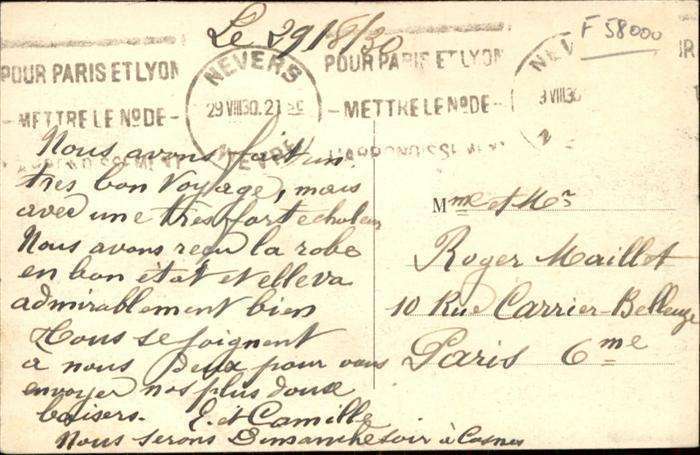 Le 29/8/30
F 58000
POUR PARIS ET LYON
METTRE LE No DE
NEVERS
29 VIII 30. 21
NIEVRE
POUR PARIS ET LYON
METTRE LE No DE
NEV
VIII 30
Nous avons fait un
très bon voyage, mais
avec une très forte chaleur
Nous avons reçu la robe
en bon état et elle va
admirablement bien
Tous se joignent
a nous Deux pour vous
envoyer nos plus doux
baisers. E. et Camille
Nous serons Dimanche soir à Cosnes
Mme et Mr
Roger Maillot
10 Rue Carrier-Belleuze
Paris 6me